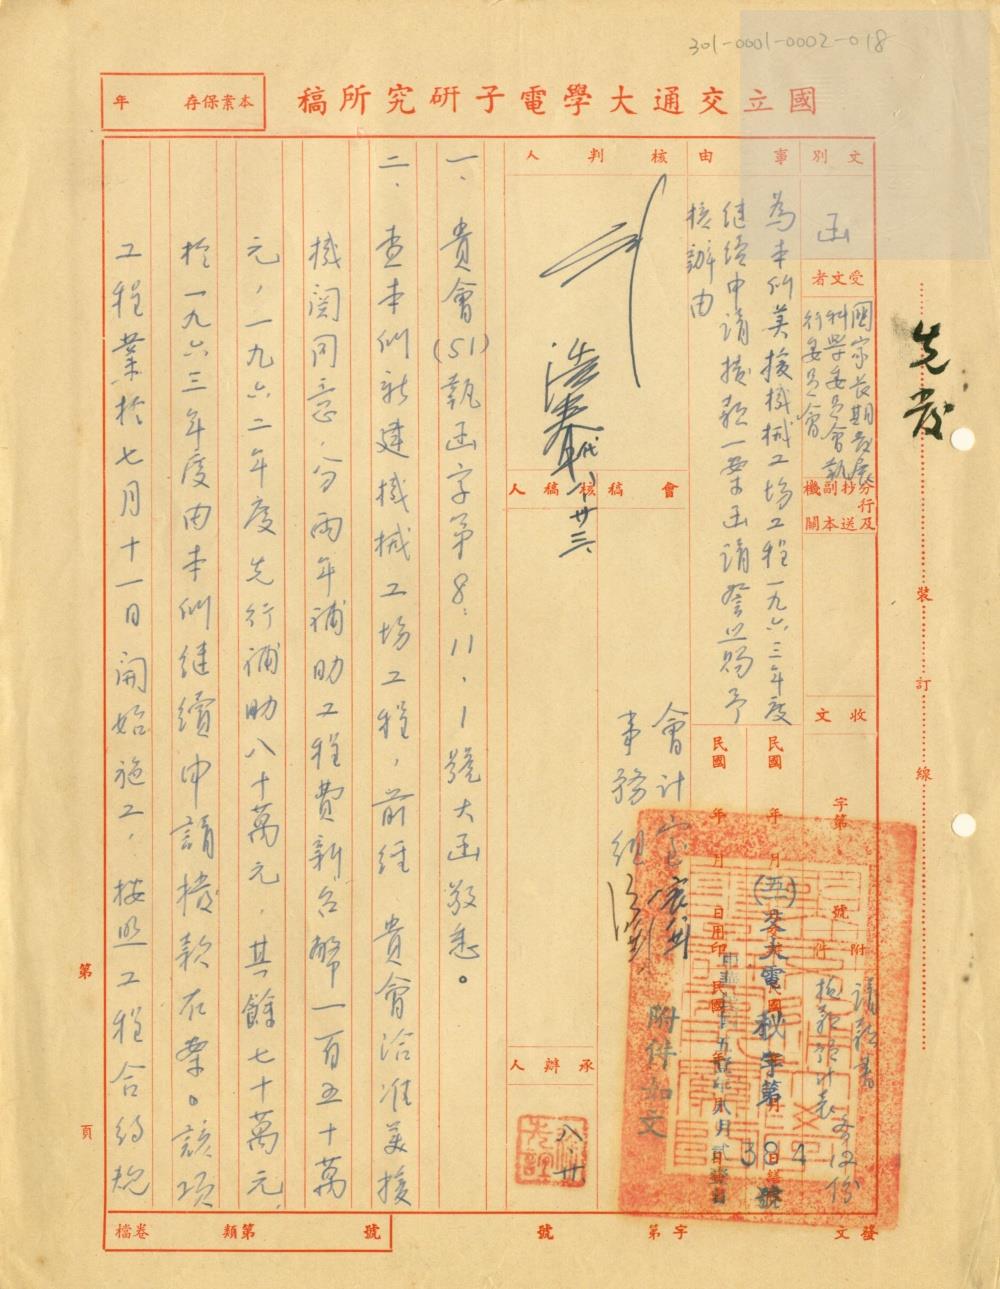 301-0001-0002-018
國立交通大學電子研究所稿
本案保存 年
文別
函
受文者
國家長期發展
科學委員會執
行委員會
分行及
抄送
副本
機關
收文
字第 號
附件
請款書
撥款預計表各12份
事由
為本所美援機械工場工程一九六三年度
繼續申請撥款一案函請詧照賜予
核辦由
民國 年 月 日
民國 年 月 日用印
(五一)交大電秘字第384號
附件如文
核判人
浩春代
八、廿三、
會稿
核稿人
會計室
事務組
承辦人
八、廿
一、貴會(51)執函字第8.11.1號大函敬悉。
二、查本所新建機械工場工程,前經 貴會洽准美援
機関同意,分兩年補助工程費新台幣一百五十萬
元,一九六二年度先行補助八十萬元,其餘七十萬元,
於一九六三年度由本所繼續申請撥款在案。該項
工程業於七月十一日開始施工,按照工程合約規
第 頁
先發
裝
訂
線
檔卷
第 類
號
號
發文 字第 號